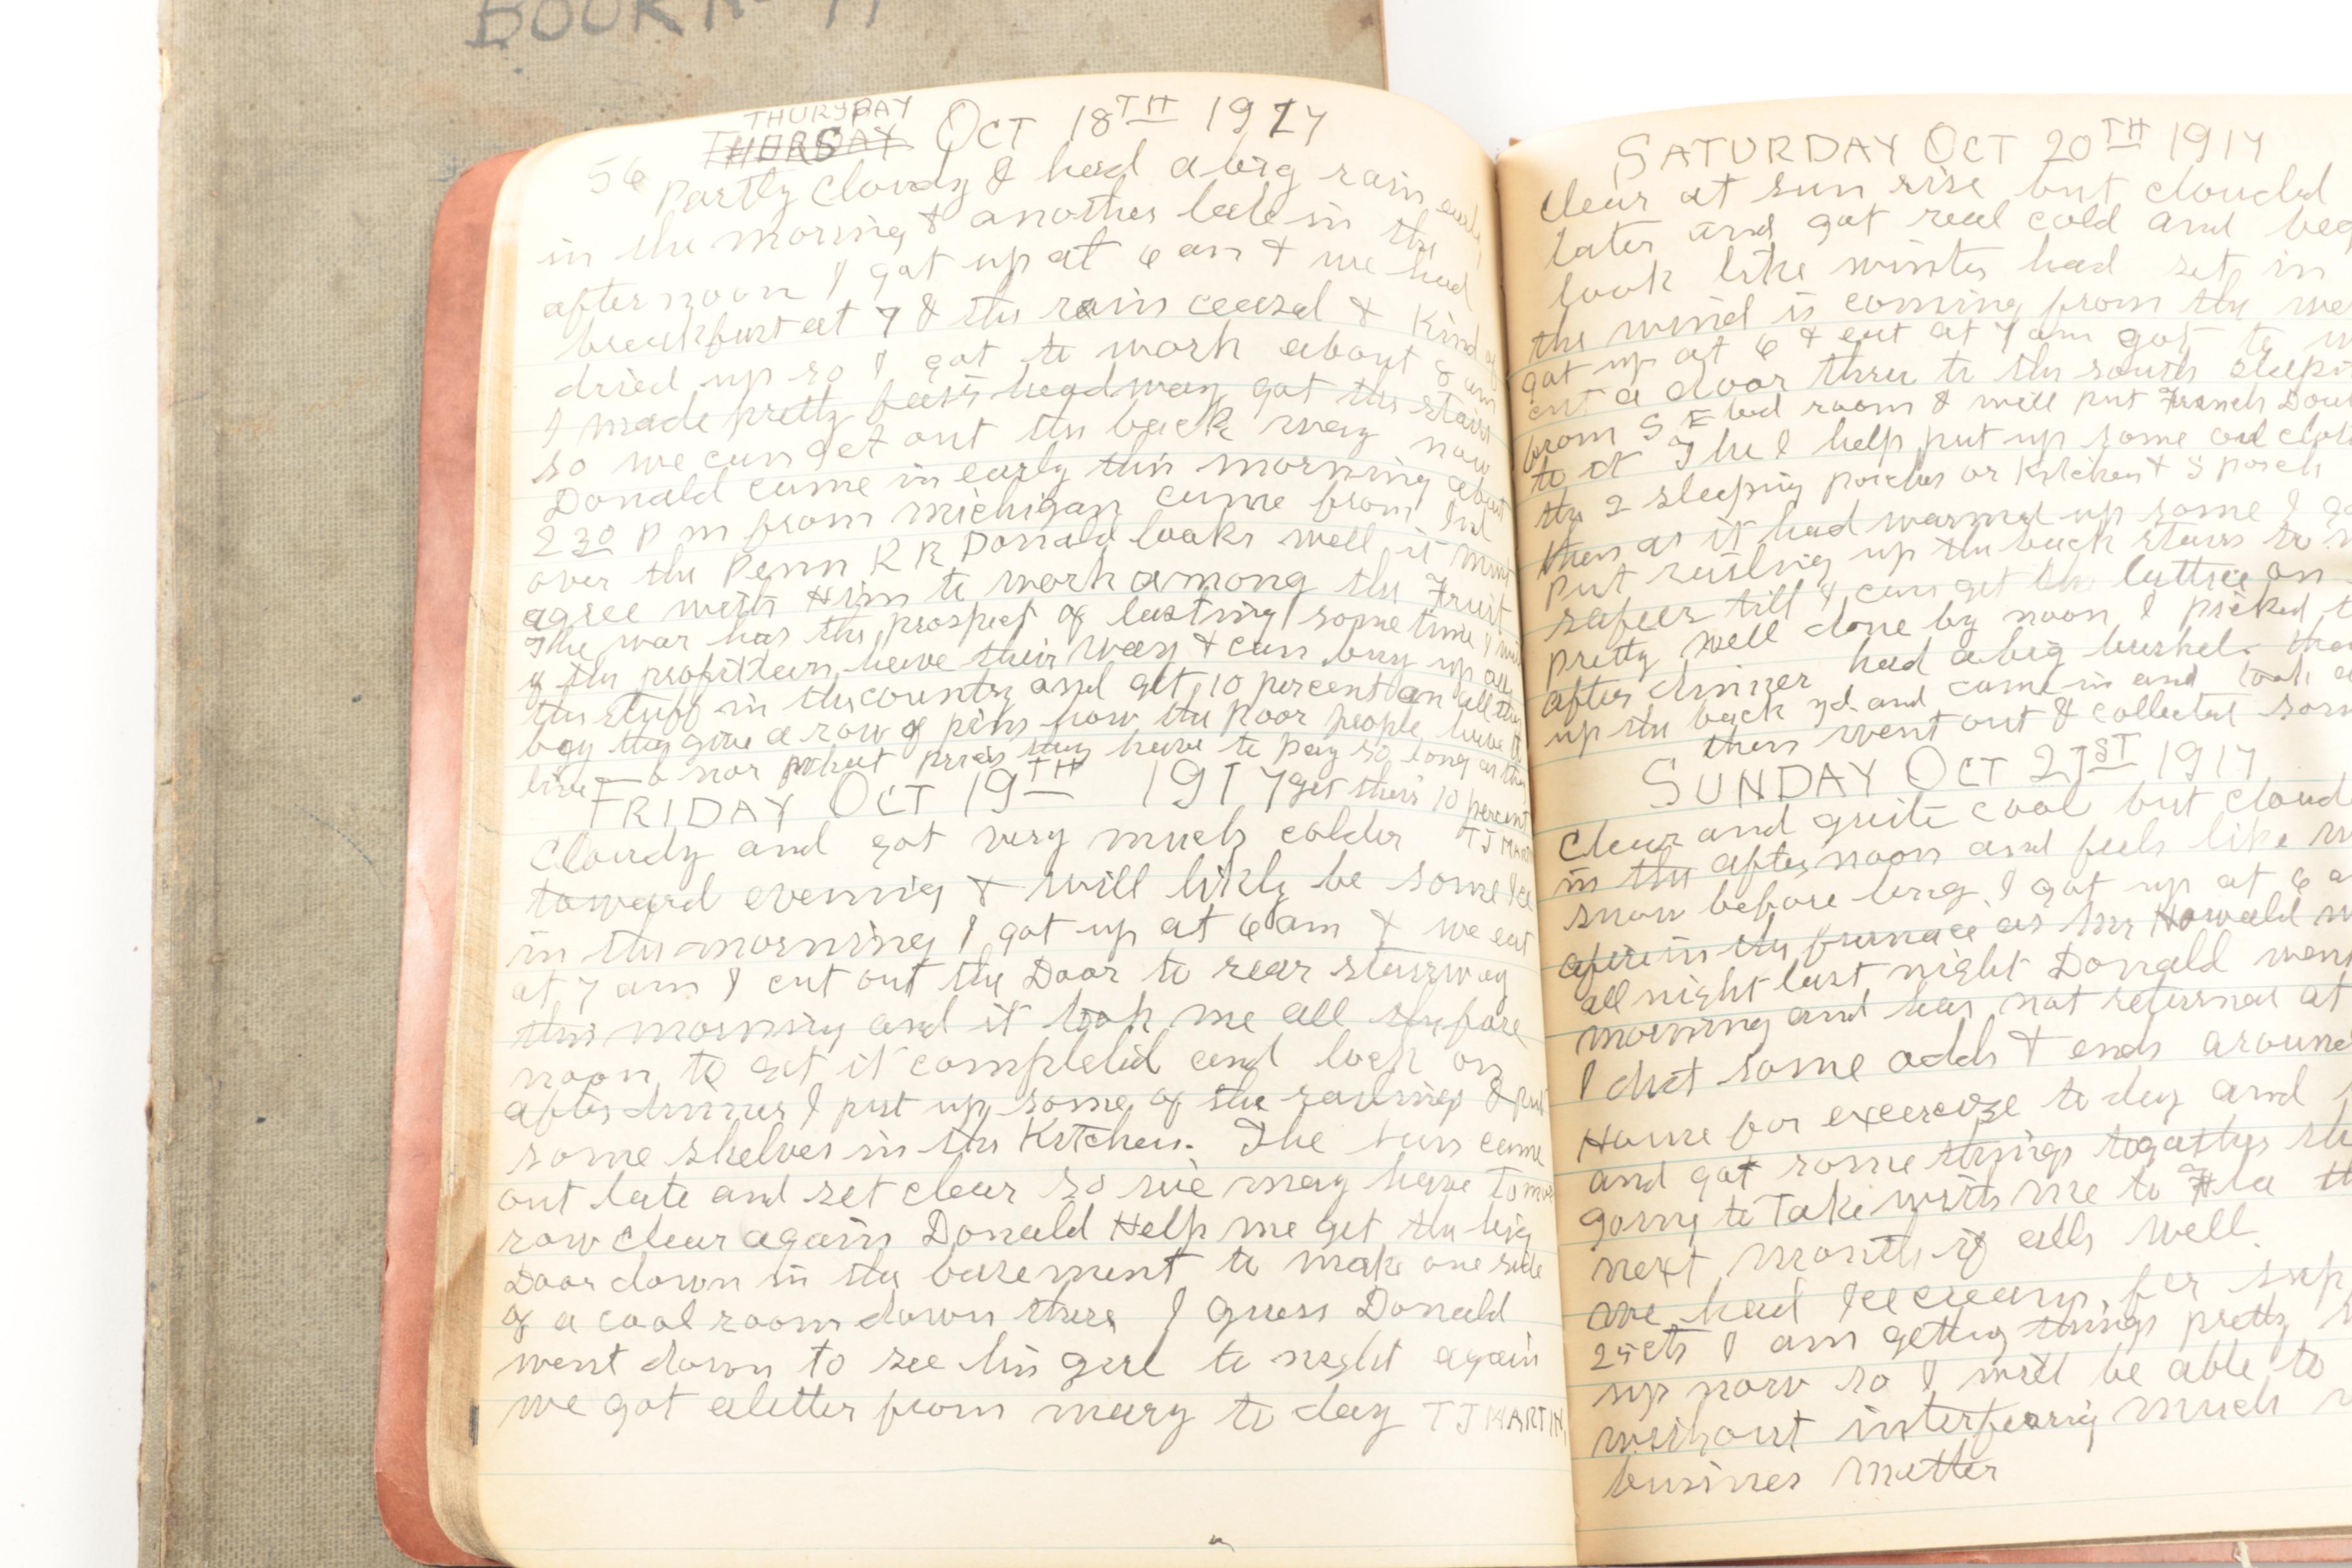 BOOK
THURSDAY
THURSDAY OCT 18TH 1917
56 Partly Cloudy & had a big rain early
in the morning & another late in the
afternoon I got up at 6 am & we had
breakfast at 7 & the rain ceased & Kind of
dried up so I got to work about 8 am
I made pretty fast headway got the stairs
so we can get out the back way now
Donald came in early this morning about
2 30 P m from Michigan came from Ind
over the Penn R R Donald looks well it must
agree with Him to work among the Fruit
The war has the prospect of lasting some time
if the profiteers have their way & can buy up all
the stuff in the country and get 10 percent on all they
buy they give a row of pins how the poor people have to
live nor what prices they have to pay so long as they
get their 10 percent
FRIDAY OCT 19TH 1917
TJ MARTIN
Cloudy and got very much colder
toward evening & will likely be some Ice
in the morning I got up at 6 am & we eat
at 7 am I cut out the Door to rear stairway
this morning and it took me all the fore
noon to get it completed and lock on
after dinner I put up some of the railings & put
some shelves in the Kitchen. The sun came
out late and set clear so we may have tomor
row clear again Donald Help me get the big
Door down in the basement to make one side
of a cool room down there I guess Donald
went down to see his girl to night again
we got a letter from mary to day TJ MARTIN
SATURDAY OCT 20TH 1917
Clear at sun rise but clouded
later and got real cold and
look like winter had set in
the wind is coming from the
got up at 6 & eat at 7 am got to
cut a door thru to the south
from S E bed room & will put French
to it The I help put up some
the 2 sleeping porches or Kitchen & S porch
then as it had warmed up some I
put railing up the back stairs so
safeer till I can get the lattice on
pretty well done by noon I picked
after dinner had a big bushel
up the back yd and came in and took
then went out & collected
SUNDAY OCT 21ST 1917
Clear and quite cool but
in the afternoon and feels like
snow before long I got up at 6
afire in the furnace as Mr Howald
all night last night Donald
morning and has not returned at
I did some odds & ends
House for exeercize to day and
and got some things togather
going to Take with me to Fla
next month if alls well
we had Icecream for
25cts I am getting things pretty
up now so I will be able to
without interfering much
busines matter